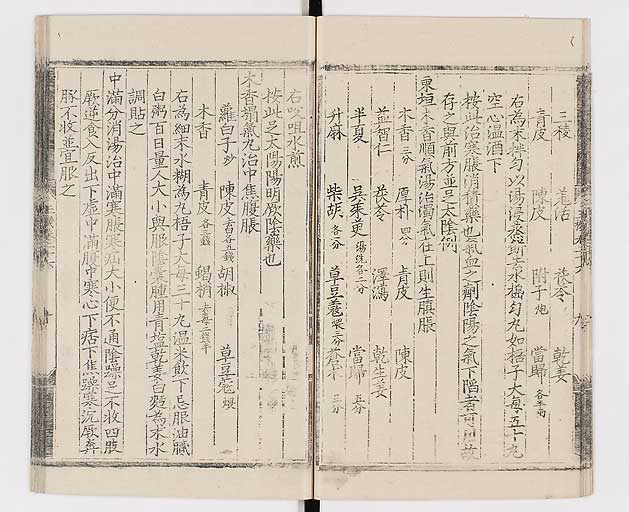 三稜 羌活 茯苓 乾姜
青皮 陳皮 附子炮 當歸各半両
右為末拌匀以湯浸蒸餅去水搗匀丸如梧子大每五十丸
空心温酒下
按此治寒脹消積藥也氣血之劑陰陽之氣下陷者可用故
存之與前方並是太陰例
東垣木香順氣湯治濁氣在上則生䐜脹
木香三分 厚朴四分 青皮 陳皮
益智仁 茯苓 澤瀉 乾生姜
半夏 呉茱萸湯洗各二分 當歸五分
升麻 柴胡各一分 草豆蔻煨三分 蒼朮三分
右㕮咀水煎
按此是太陽陽明厥陰藥也
木香塌氣丸治中焦腹脹
蘿白子炒 陳皮去白各五錢 胡椒 草豆寇煨
木香 青皮各三錢 蝎梢去毒二錢半
右為細末水糊為丸梧子大每三十丸温米飲下忌服油膩
白粥百日量人大小與服陰囊腫用青塩乾姜白麪為末水
調貼之
中滿分消湯治中滿寒脹寒疝大小便不通陰躁足不收四肢
厥逆食入反出下虛中滿腹中寒心下痞下焦躁寒沉厥奔
豚不收並宜服之